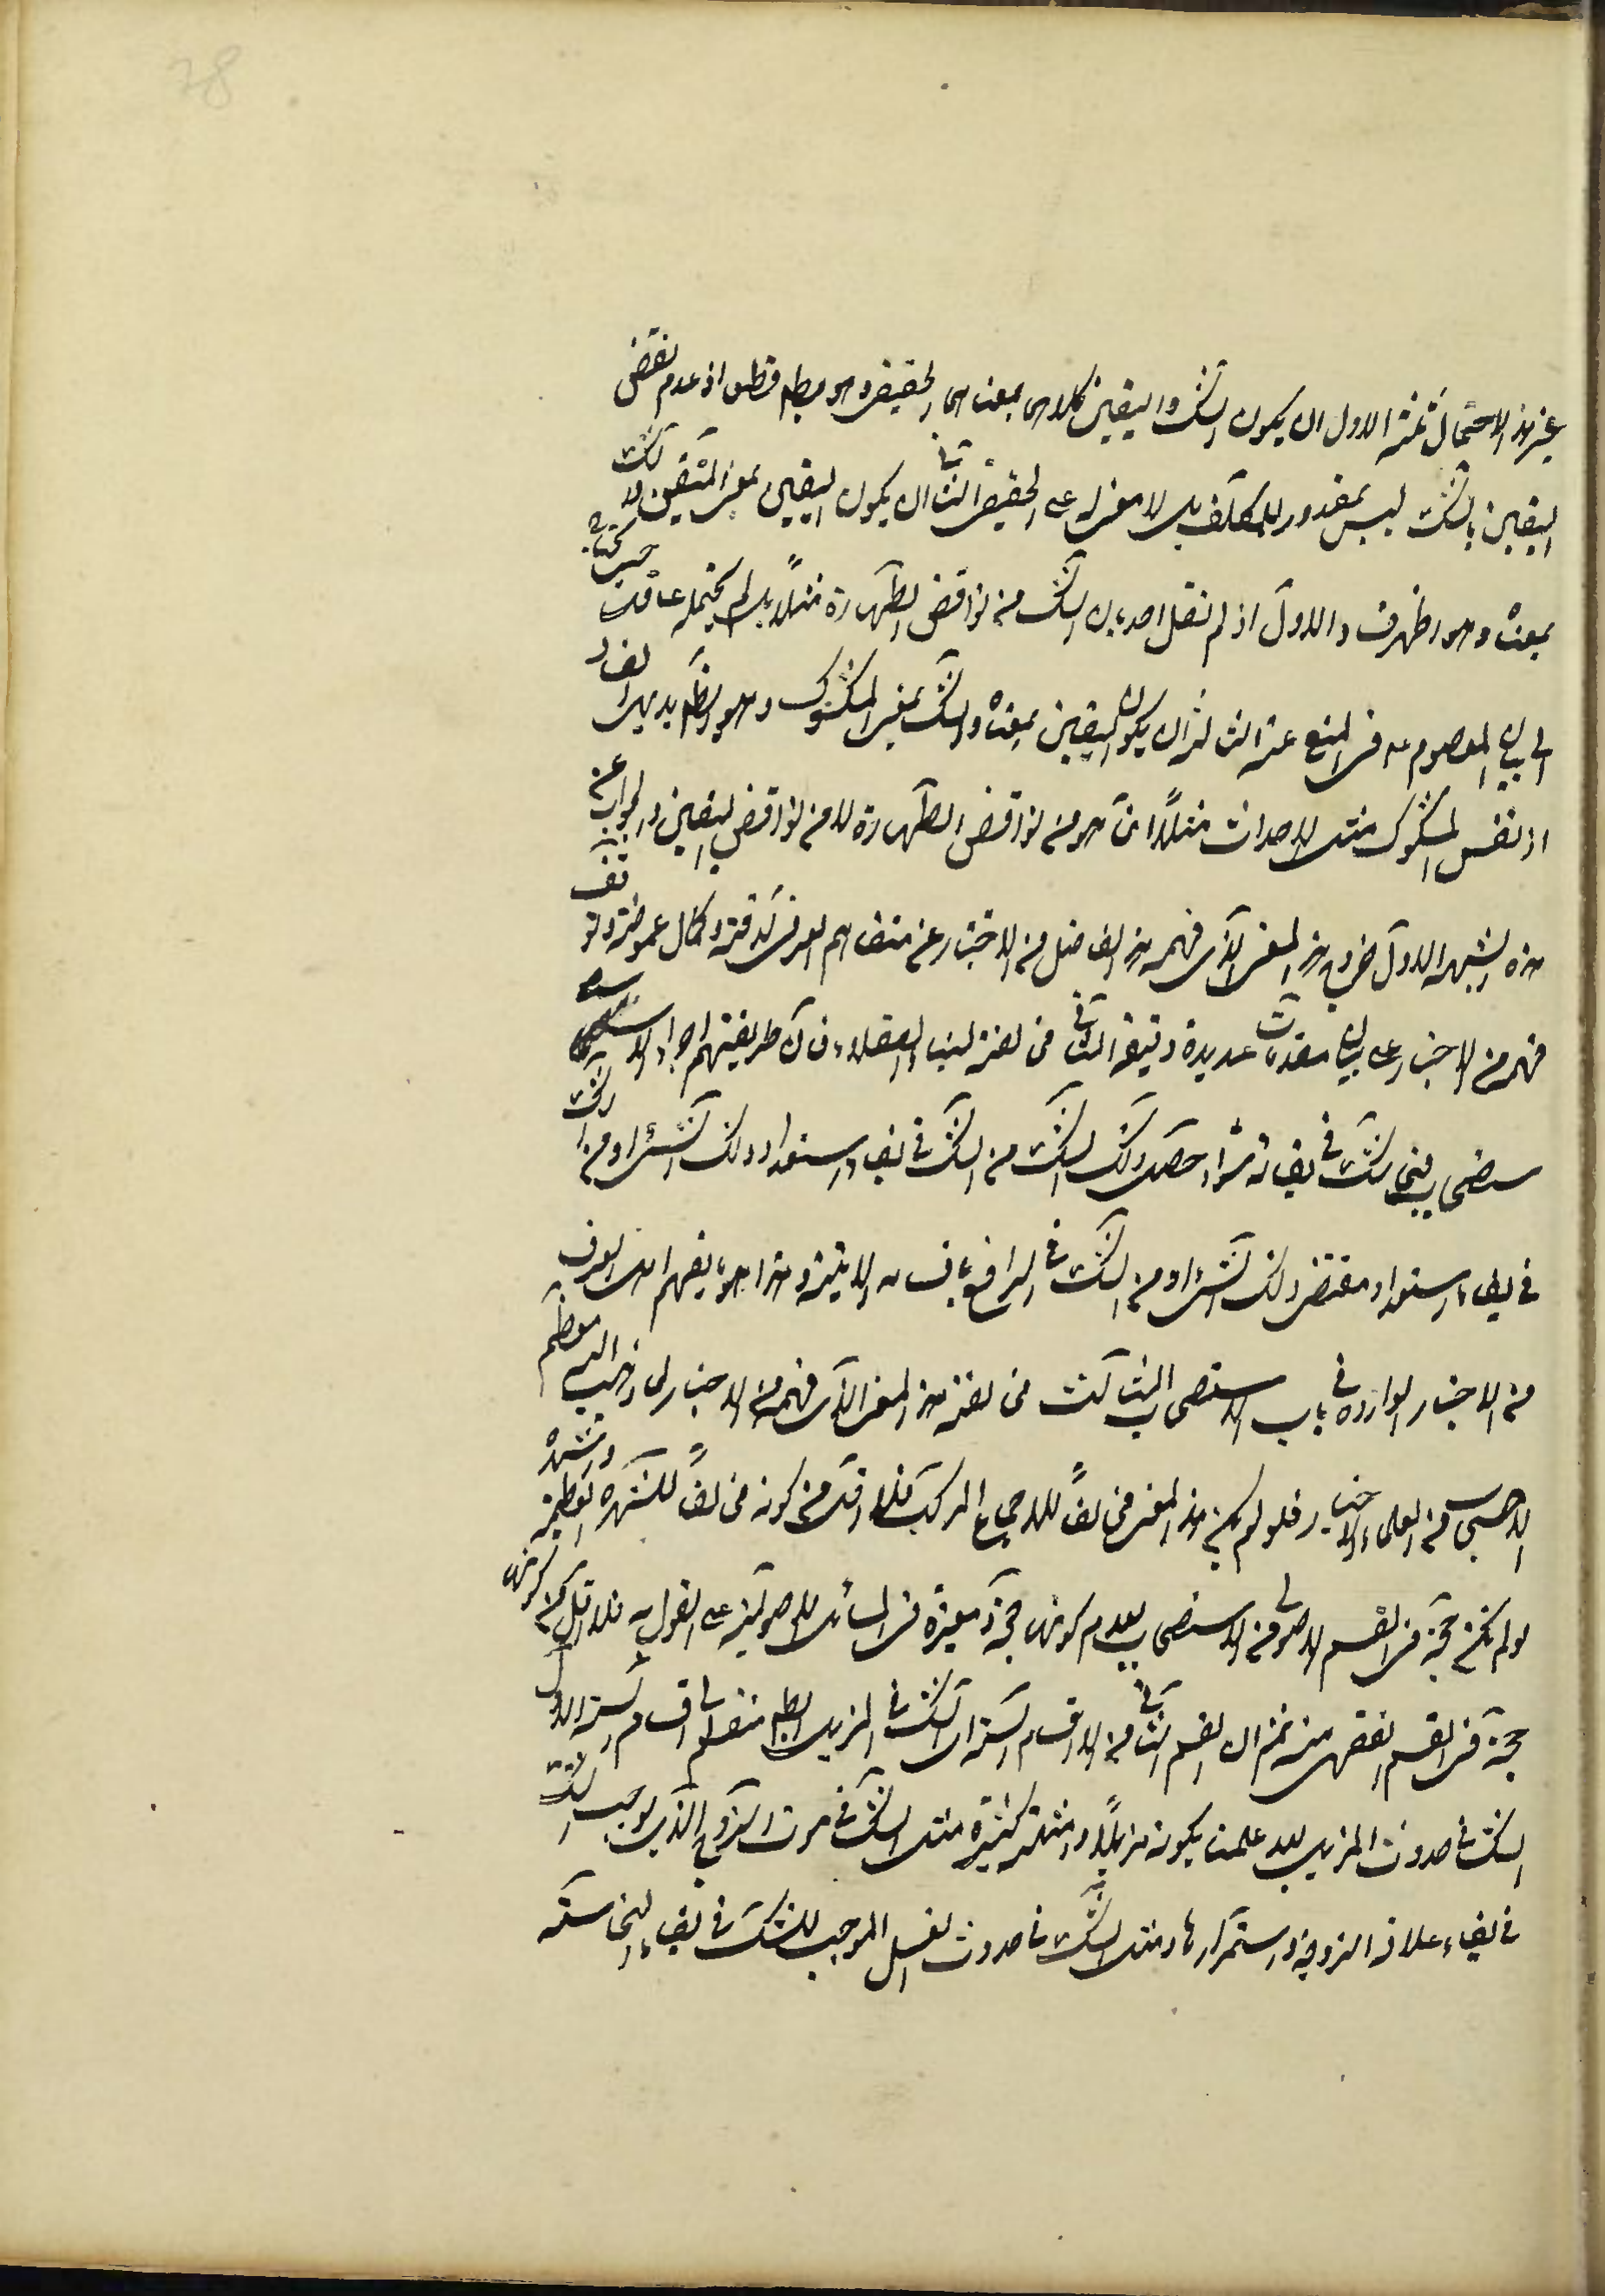 78
غير هذا الاحتمال ثلثة الاول ان يكون الشك واليقين كلاهما بمعناهما الحقيقى وهو بط قطعا اذ عدم نقض
اليقين بالشك ليس بمقدور للمكلف بل لا معنى له على الحقيقى الثانى ان يكون اليقين بمعنى المتيقن والشك
بمعناه وهو اظهر من الاول اذ لم نقل احد بان الشك من نواقض الطهارة مثلا بل لم يحتمله عاقل حتى يحتاج
الى بيان المعصوم ع فى المنع عنه الثالث ان يكون اليقين بمعناه والشك بمعنى المشكوك وهو بط بديهة ايضا
اذ نفس المشكوك مثل الاحداث مثلا انما هو من نواقض الطهارة لا من نواقض اليقين والجواب عن
هذه الشبهة الاول خروج هذا المعنى الذى فهمه هذا الفاضل من الاخبار عن متفاهم العرف لدقته وكمال غموضه وتوقف
فهمه من الاخبار على بيان مقدمات عديدة دقيقة الثانى مخالفته لبناء العقلاء فان طريقتهم اجراء الاستصحاب
فيما شك فى بقائه سواء حصل ذلك الشك من الشك فى بقاء استعداد ذلك الشىء او من الشك
فى بقاء استعداد مقتضى ذلك الشىء او من الشك فى الرافع باقسامه الاتية وهذا هو ما يفهم اهل العرف
من الاخبار الواردة فى باب الاستصحاب الثالث مخالفته هذا المعنى الذى فهمه من الاخبار لما ذهب اليه معظم
الاصحاب من العلماء الاخيار فلو لم يكن هذا المعنى مخالفا للاجماع المركب فلا اقل من كونه مخالفا للشهرة العظيمة
لو لم تكن حجة فى القسم الاصولى من الاستصحاب لعدم كونها حجة معتبرة فى المسائل الاصولية على القول به فلا اقل من كونها
حجة فى القسم الفقهى منه ثم ان القسم الثانى من الاقسام الستة اى الشك فى المزيل ايضا منقسم الى اقسام ستة الاول
الشك فى حدوث المزيل بعد علمنا بكونه مزيلا وامثلته كثيرة مثل الشك فى موت الزوج الذى يوجب الشك
فى بقاء علاقة الزوجية واستمرارها ومثل الشك فى حدوث الغسل الموجب للشك فى بقاء النجاسة